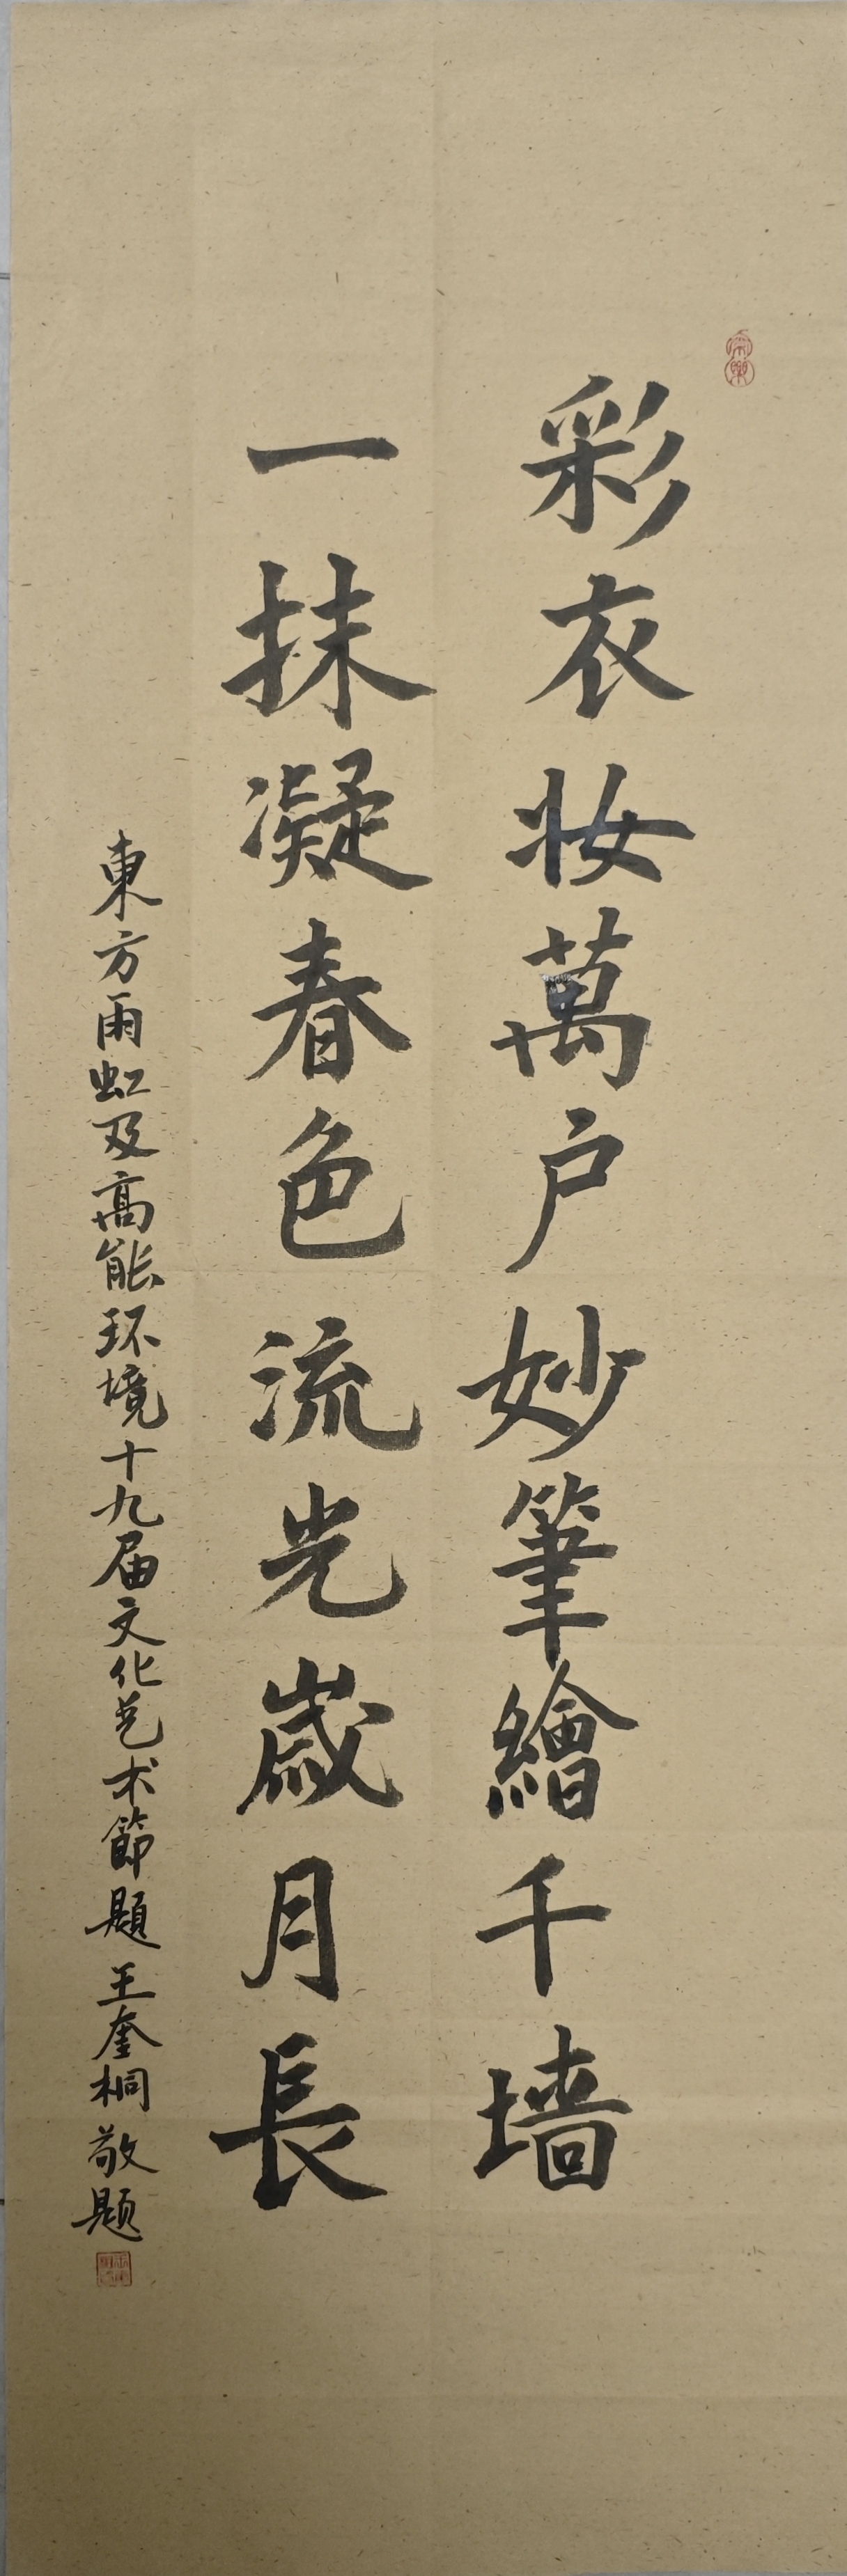 彩衣妆萬户妙筆繪千墙
一抹凝春色流光歲月長
東方雨虹及高能环境十九届文化艺术節題王奎桐敬题